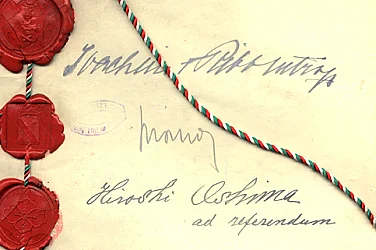 Joachim v Ribbentrop
Hiroshi Oshima
ad referendum